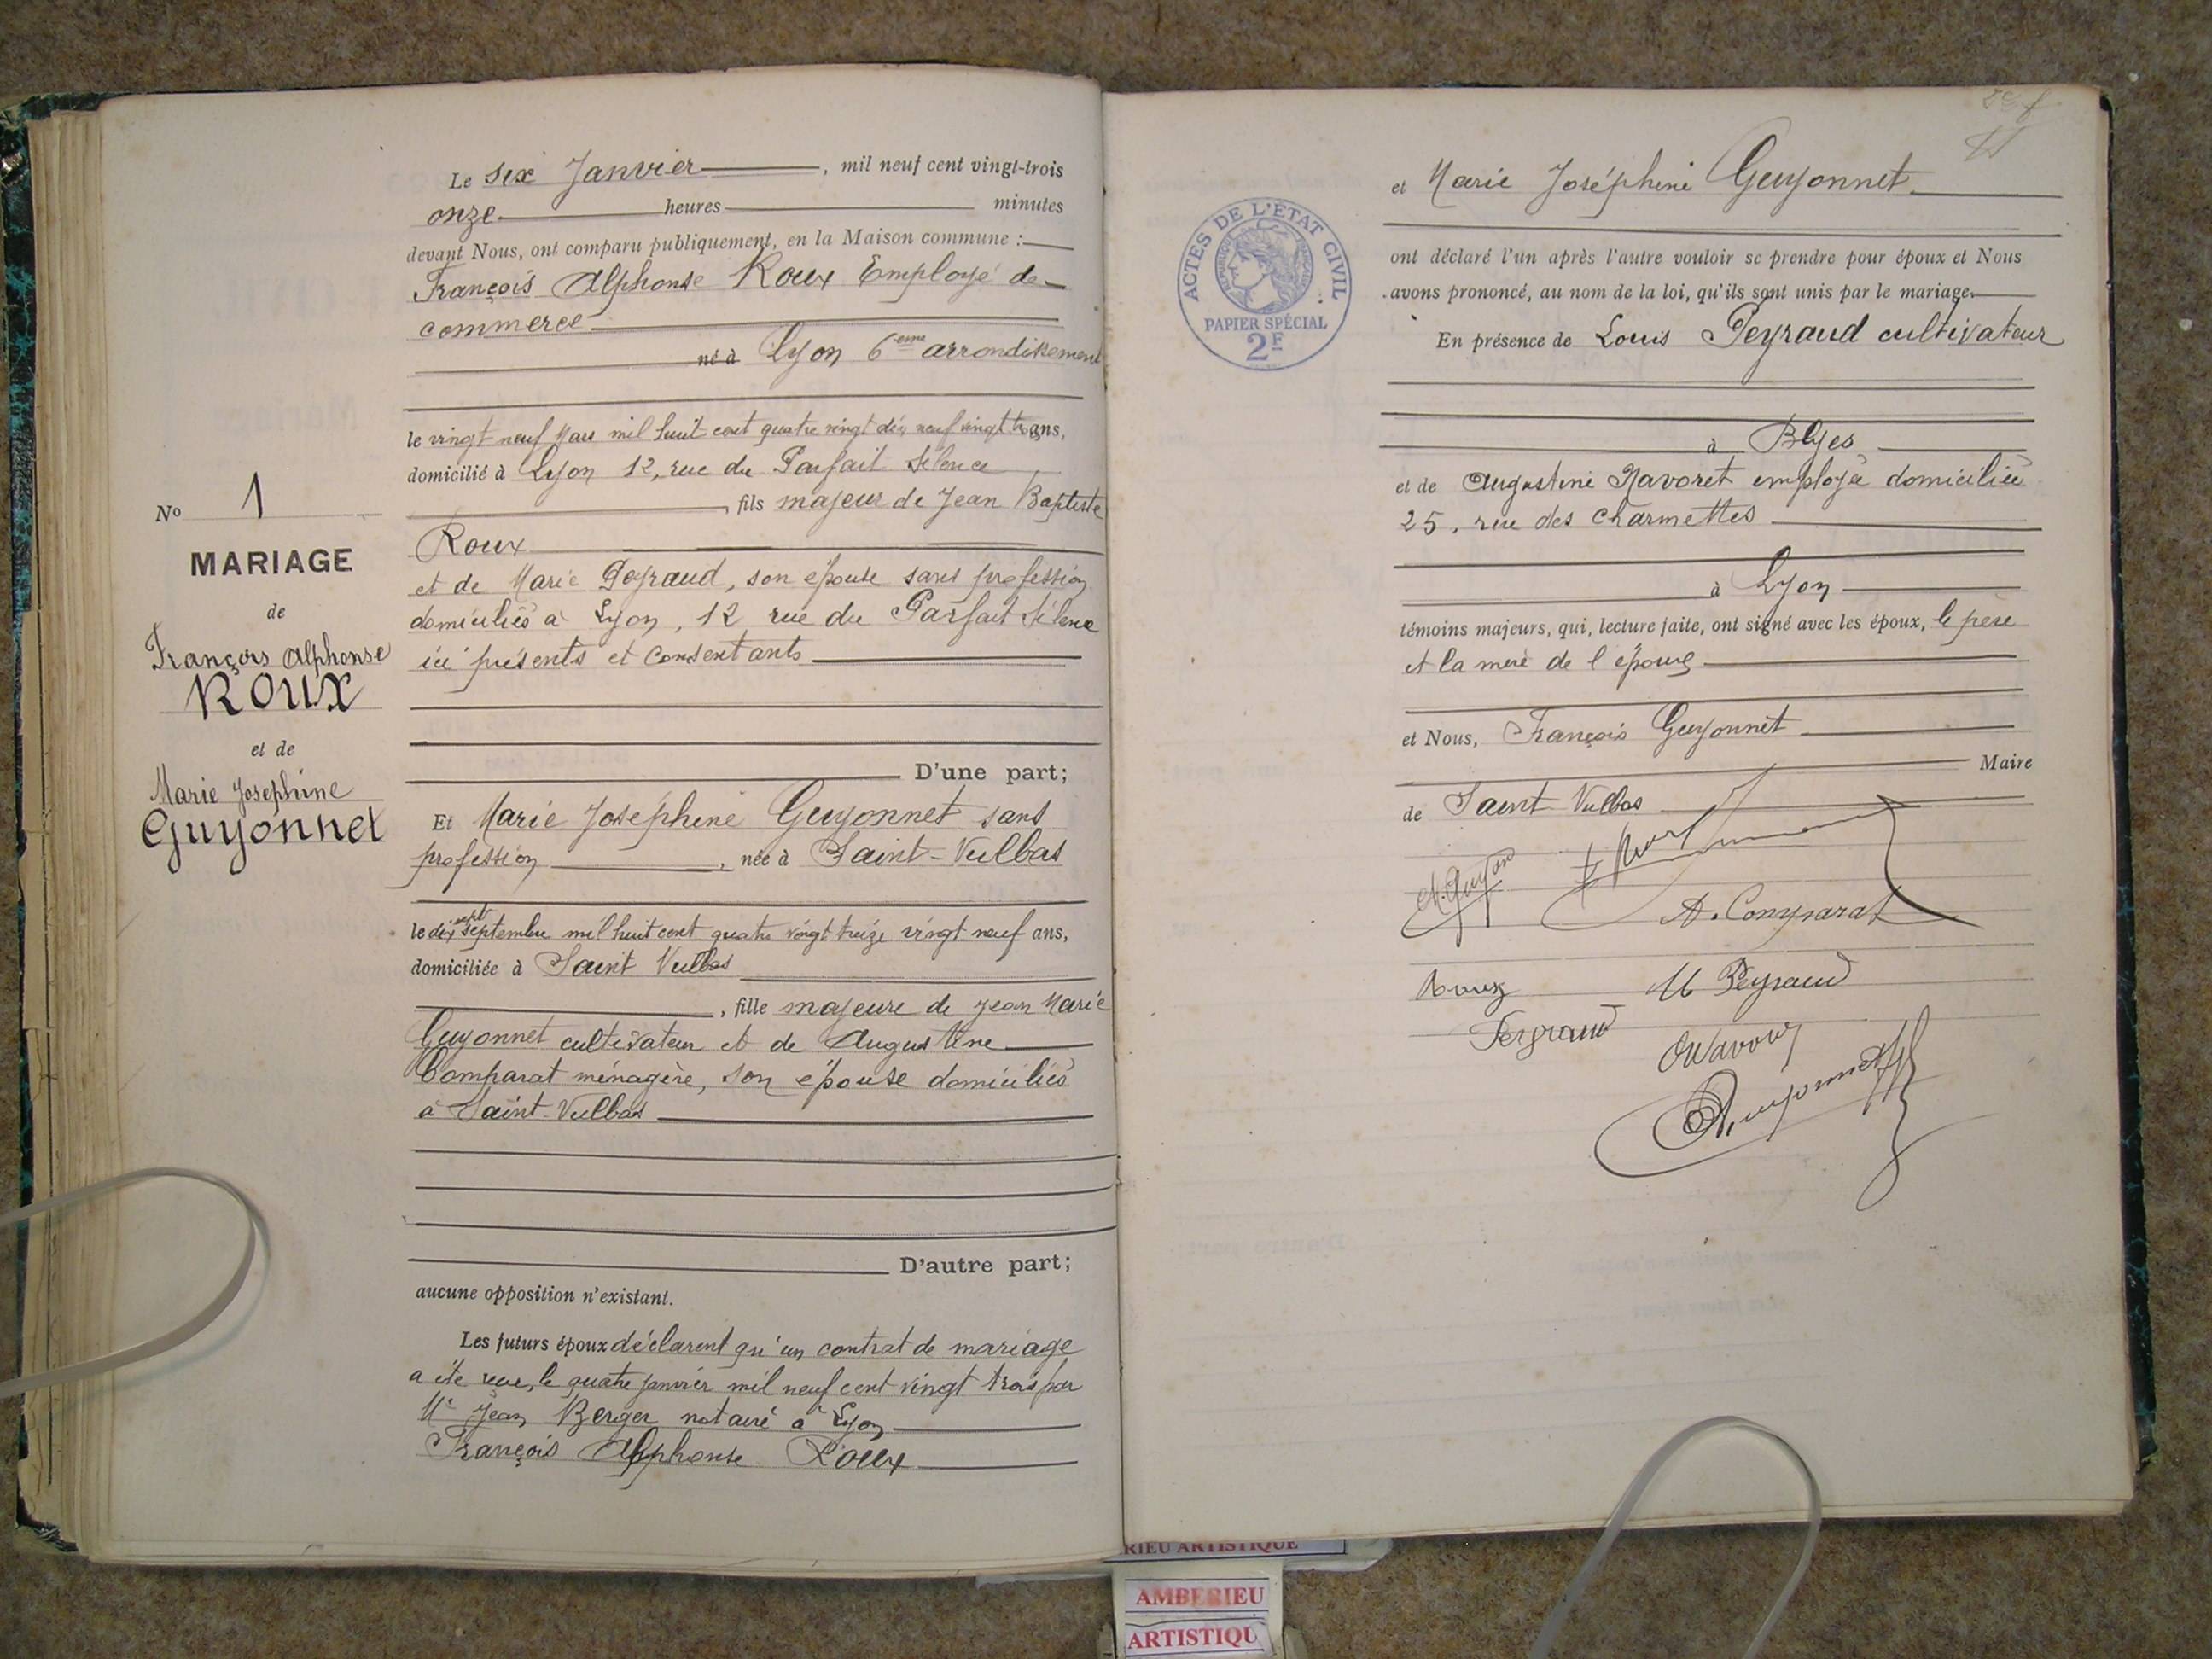 Le six Janvier , mil neuf cent vingt-trois
onze heures minutes
devant Nous, ont comparu publiquement, en la Maison commune :
François Alphonse Roux Employé de
commerce
né à Lyon 6eme arrondissement
le vingt neuf Mars mil huit cent quatre vingt dix neuf vingt trois ans,
domicilié à Lyon 12, rue du Parfait Silence
, fils majeur de Jean Baptiste
Roux
et de Marie Peyraud, son épouse sans profession
domiciliés à Lyon, 12 rue du Parfait Silence
ici présents et consentants
D'une part;
No 1
MARIAGE
de
François Alphonse
ROUX
et de
Marie Josephine
Guyonnet
Et Marie Joséphine Guyonnet sans
profession , née à Saint-Vulbas
le dix sept septembre mil huit cent quatre vingt treize vingt neuf ans,
domiciliée à Saint Vulbas
, fille majeure de Jean Marie
Guyonnet cultivateur et de Augustine
Comparat ménagère, son épouse domiciliés
à Saint-Vulbas
D'autre part;
aucune opposition n'existant.
Les futurs époux déclarent qu'un contrat de mariage
a été reçu, le quatre janvier mil neuf cent vingt trois par
Me Jean Berger notaire à Lyon
François Alphonse Roux
et Marie Joséphine Guyonnet
ACTES DE L'ÉTAT CIVIL
PAPIER SPÉCIAL
2F
ont déclaré l'un après l'autre vouloir se prendre pour époux et Nous
avons prononcé, au nom de la loi, qu'ils sont unis par le mariage.
En présence de Louis Peyraud cultivateur
à Blyes
et de Augustine Navoret employée domiciliée
25, rue des Charmettes
à Lyon
témoins majeurs, qui, lecture faite, ont signé avec les époux, le père
et la mère de l'épouse
et Nous, François Guyonnet
Maire
de Saint Vulbas
A. Comparat
Roux M Peyraud
Peyraud
Guyonnet
RIEU ARTISTIQUE
AMBERIEU
ARTISTIQU